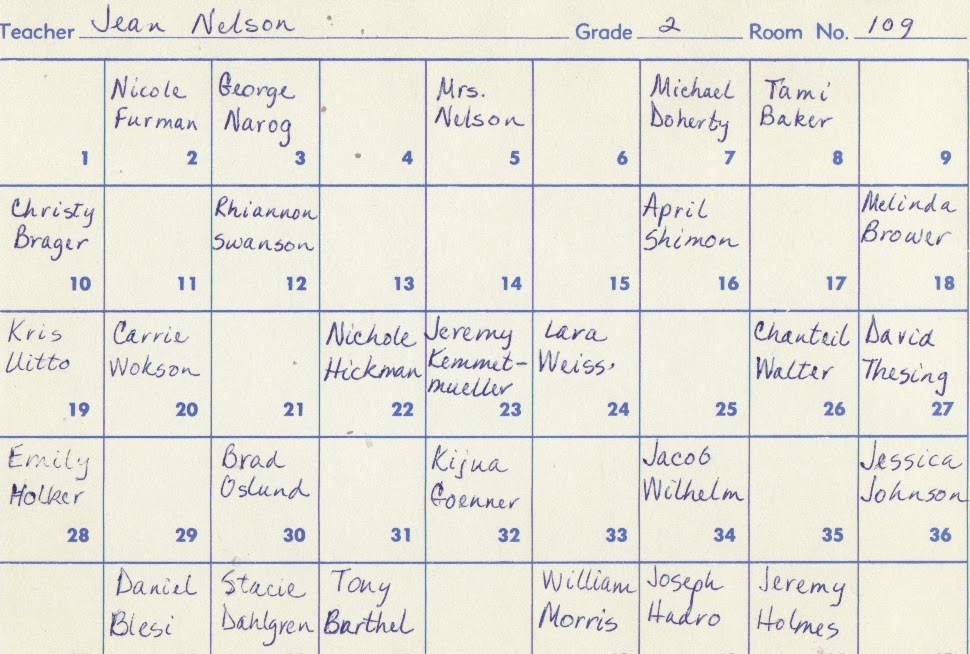 Teacher Jean Nelson Grade 2 Room No. 109
Nicole George Mrs. Michael Tami
Furman Narog Nelson Doherty Baker
1 2 3 4 5 6 7 8 9
Christy Rhiannon April Melinda
Brager Swanson Shimon Brower
10 11 12 13 14 15 16 17 18
Kris Carrie Nichole Jeremy Lara Chanteil David
Uitto Wokson Hickman Kemmet- Weiss. Walter Thesing
mueller
19 20 21 22 23 24 25 26 27
Emily Brad Kijua Jacob Jessica
Holker Oslund Goenner Wilhelm Johnson
28 29 30 31 32 33 34 35 36
Daniel Stacie Tony William Joseph Jeremy
Blesi Dahlgren Barthel Morris Hadro Holmes